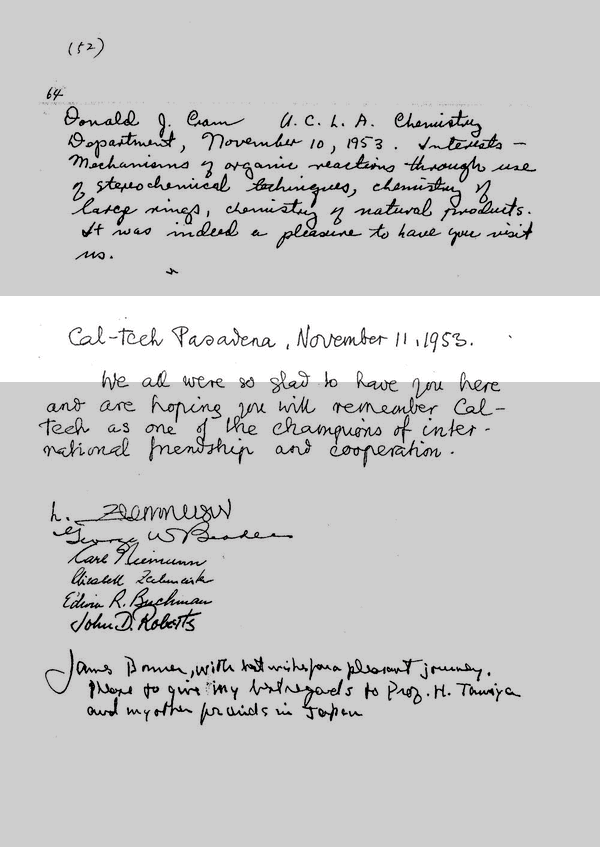 (52)
64
Donald J. Cram U.C.L.A. Chemistry
Department, November 10, 1953. Interests –
Mechanisms of organic reactions through use
of stereochemical techniques, chemistry of
large rings, chemistry of natural products.
It was indeed a pleasure to have you visit
us.
Cal-tech Pasadena, November 11, 1953.
We all were so glad to have you here
and are hoping you will remember Cal-
tech as one of the champions of inter-
national friendship and cooperation.
L. Zechmeister
George W. Beadle
Carl Niemann
Elisabeth Zechmeister
Edwin R. Buchman
John D. Roberts
James Bonner, with best wishes for a pleasant journey.
Please to give my best regards to Prof. H. Tamiya
and my other friends in Japan